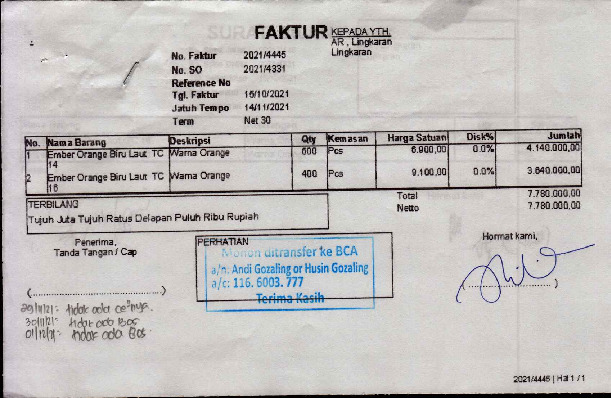 FAKTUR
KEPADA YTH.
AR , Lingkaran
Lingkaran
No. Faktur 2021/4445
No. SO 2021/4331
Reference No
Tgl. Faktur 15/10/2021
Jatuh Tempo 14/11/2021
Term Net 30
No. Nama Barang Deskripsi Qty Kemasan Harga Satuan Disk% Jumlah
1 Ember Orange Biru Laut TC 14 Warna Orange 600 Pcs 6.900,00 0.0% 4.140.000,00
2 Ember Orange Biru Laut TC 16 Warna Orange 400 Pcs 9.100,00 0.0% 3.640.000,00
Total 7.780.000,00
Netto 7.780.000,00
TERBILANG
Tujuh Juta Tujuh Ratus Delapan Puluh Ribu Rupiah
Penerima,
Tanda Tangan / Cap
PERHATIAN
Mohon ditransfer ke BCA
a/n: Andi Gozaling or Husin Gozaling
a/c: 116. 6003. 777
Terima Kasih
Hormat kami,
29/11/21: tidak ada
30/11/21: tidak ada Bos
01/12/21: tidak ada Bos
2021/4445 | Hal 1 / 1